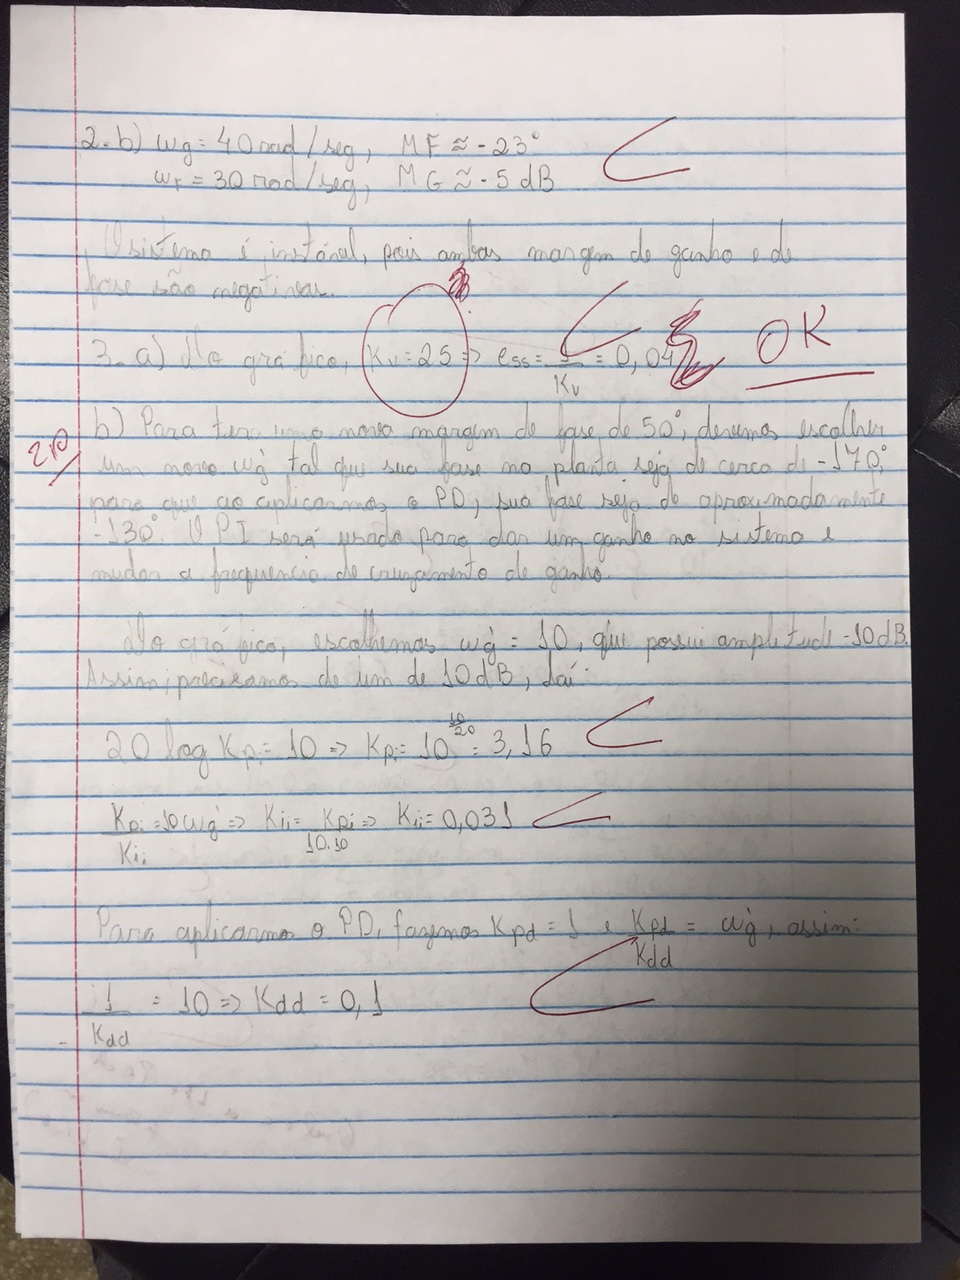 2-b) wg = 40 rad/seg, MF ≈ -23°
wf = 30 rad/seg, MG ≈ -5 dB
O sistema é instável, pois ambas margem de ganho e de
fase são negativas.
3-a) No gráfico, Kv = 25 => ess = 1/Kv = 0,04
OK
2,0
b) Para termos uma nova margem de fase de 50°, devemos escolher
um novo wg' tal que sua fase na planta seja de cerca de -170°,
para que ao aplicarmos o PD, sua fase seja de aproximadamente
-130°. O PI será usado para dar um ganho no sistema e
mudar a frequencia de cruzamento de ganho.
No gráfico, escolhemos wg' = 10, que possui amplitude -10dB.
Assim, precisamos de um de 10dB, daí:
20 log Kpi = 10 => Kpi = 10^(10/20) = 3,16
Kpi/Kii = 10wg' => Kii = Kpi/10.10 => Kii = 0,031
Para aplicarmo o PD, fazemos Kpd = 1 e Kpd/Kdd = wg', assim:
1/Kdd = 10 => Kdd = 0,1